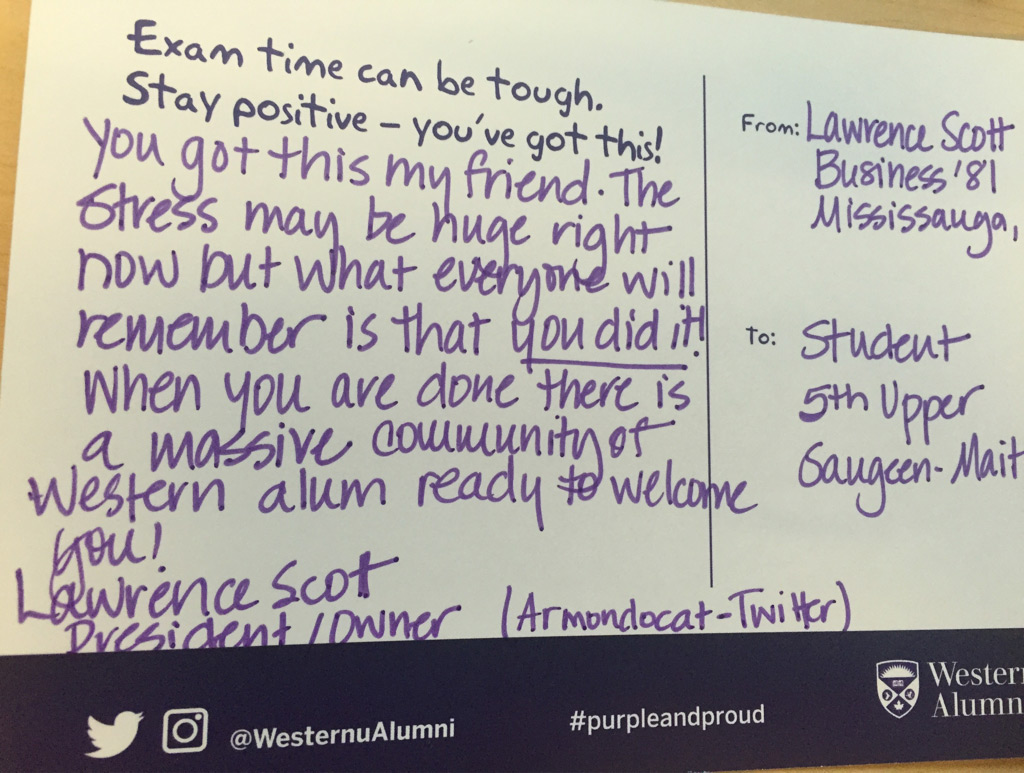 Exam time can be tough.
Stay positive – you've got this!
You got this my friend. The
Stress may be huge right
now but what everyone will
remember is that you did it!
When you are done there is
a massive community of
Western alum ready to welcome
you!
Lawrence Scot
President/Owner (Armondocat-Twitter)
From: Lawrence Scott
Business '81
Mississauga,
To: Student
5th Upper
Saugeen-Mait
@WesternuAlumni
#purpleandproud
Western
Alumn